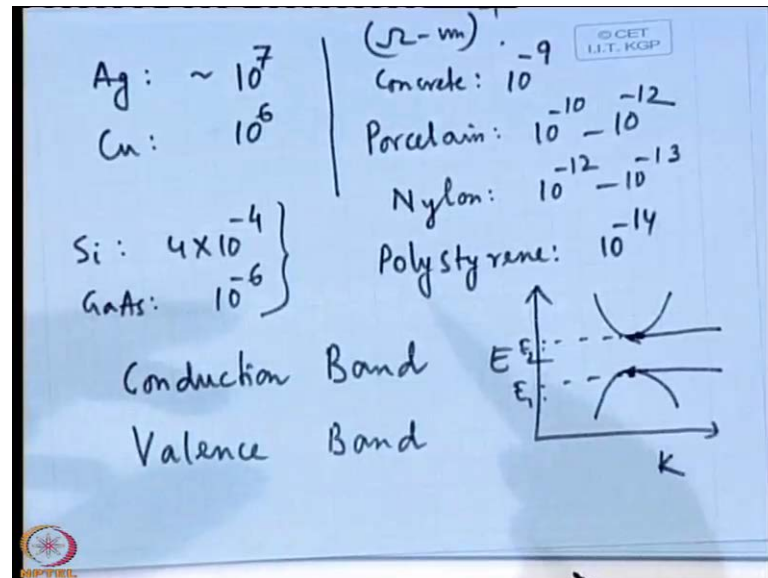 (Ω-m)⁻¹.
© CET
I.I.T. KGP
Ag: ~ 10⁷
Cu: 10⁶
Si: 4×10⁻⁴
GaAs: 10⁻⁶
Concrete: 10⁻⁹
Porcelain: 10⁻¹⁰ – 10⁻¹²
Nylon: 10⁻¹² – 10⁻¹³
Polystyrene: 10⁻¹⁴
Conduction Band
Valence Band
E
E₂
E₁
K
NPTEL